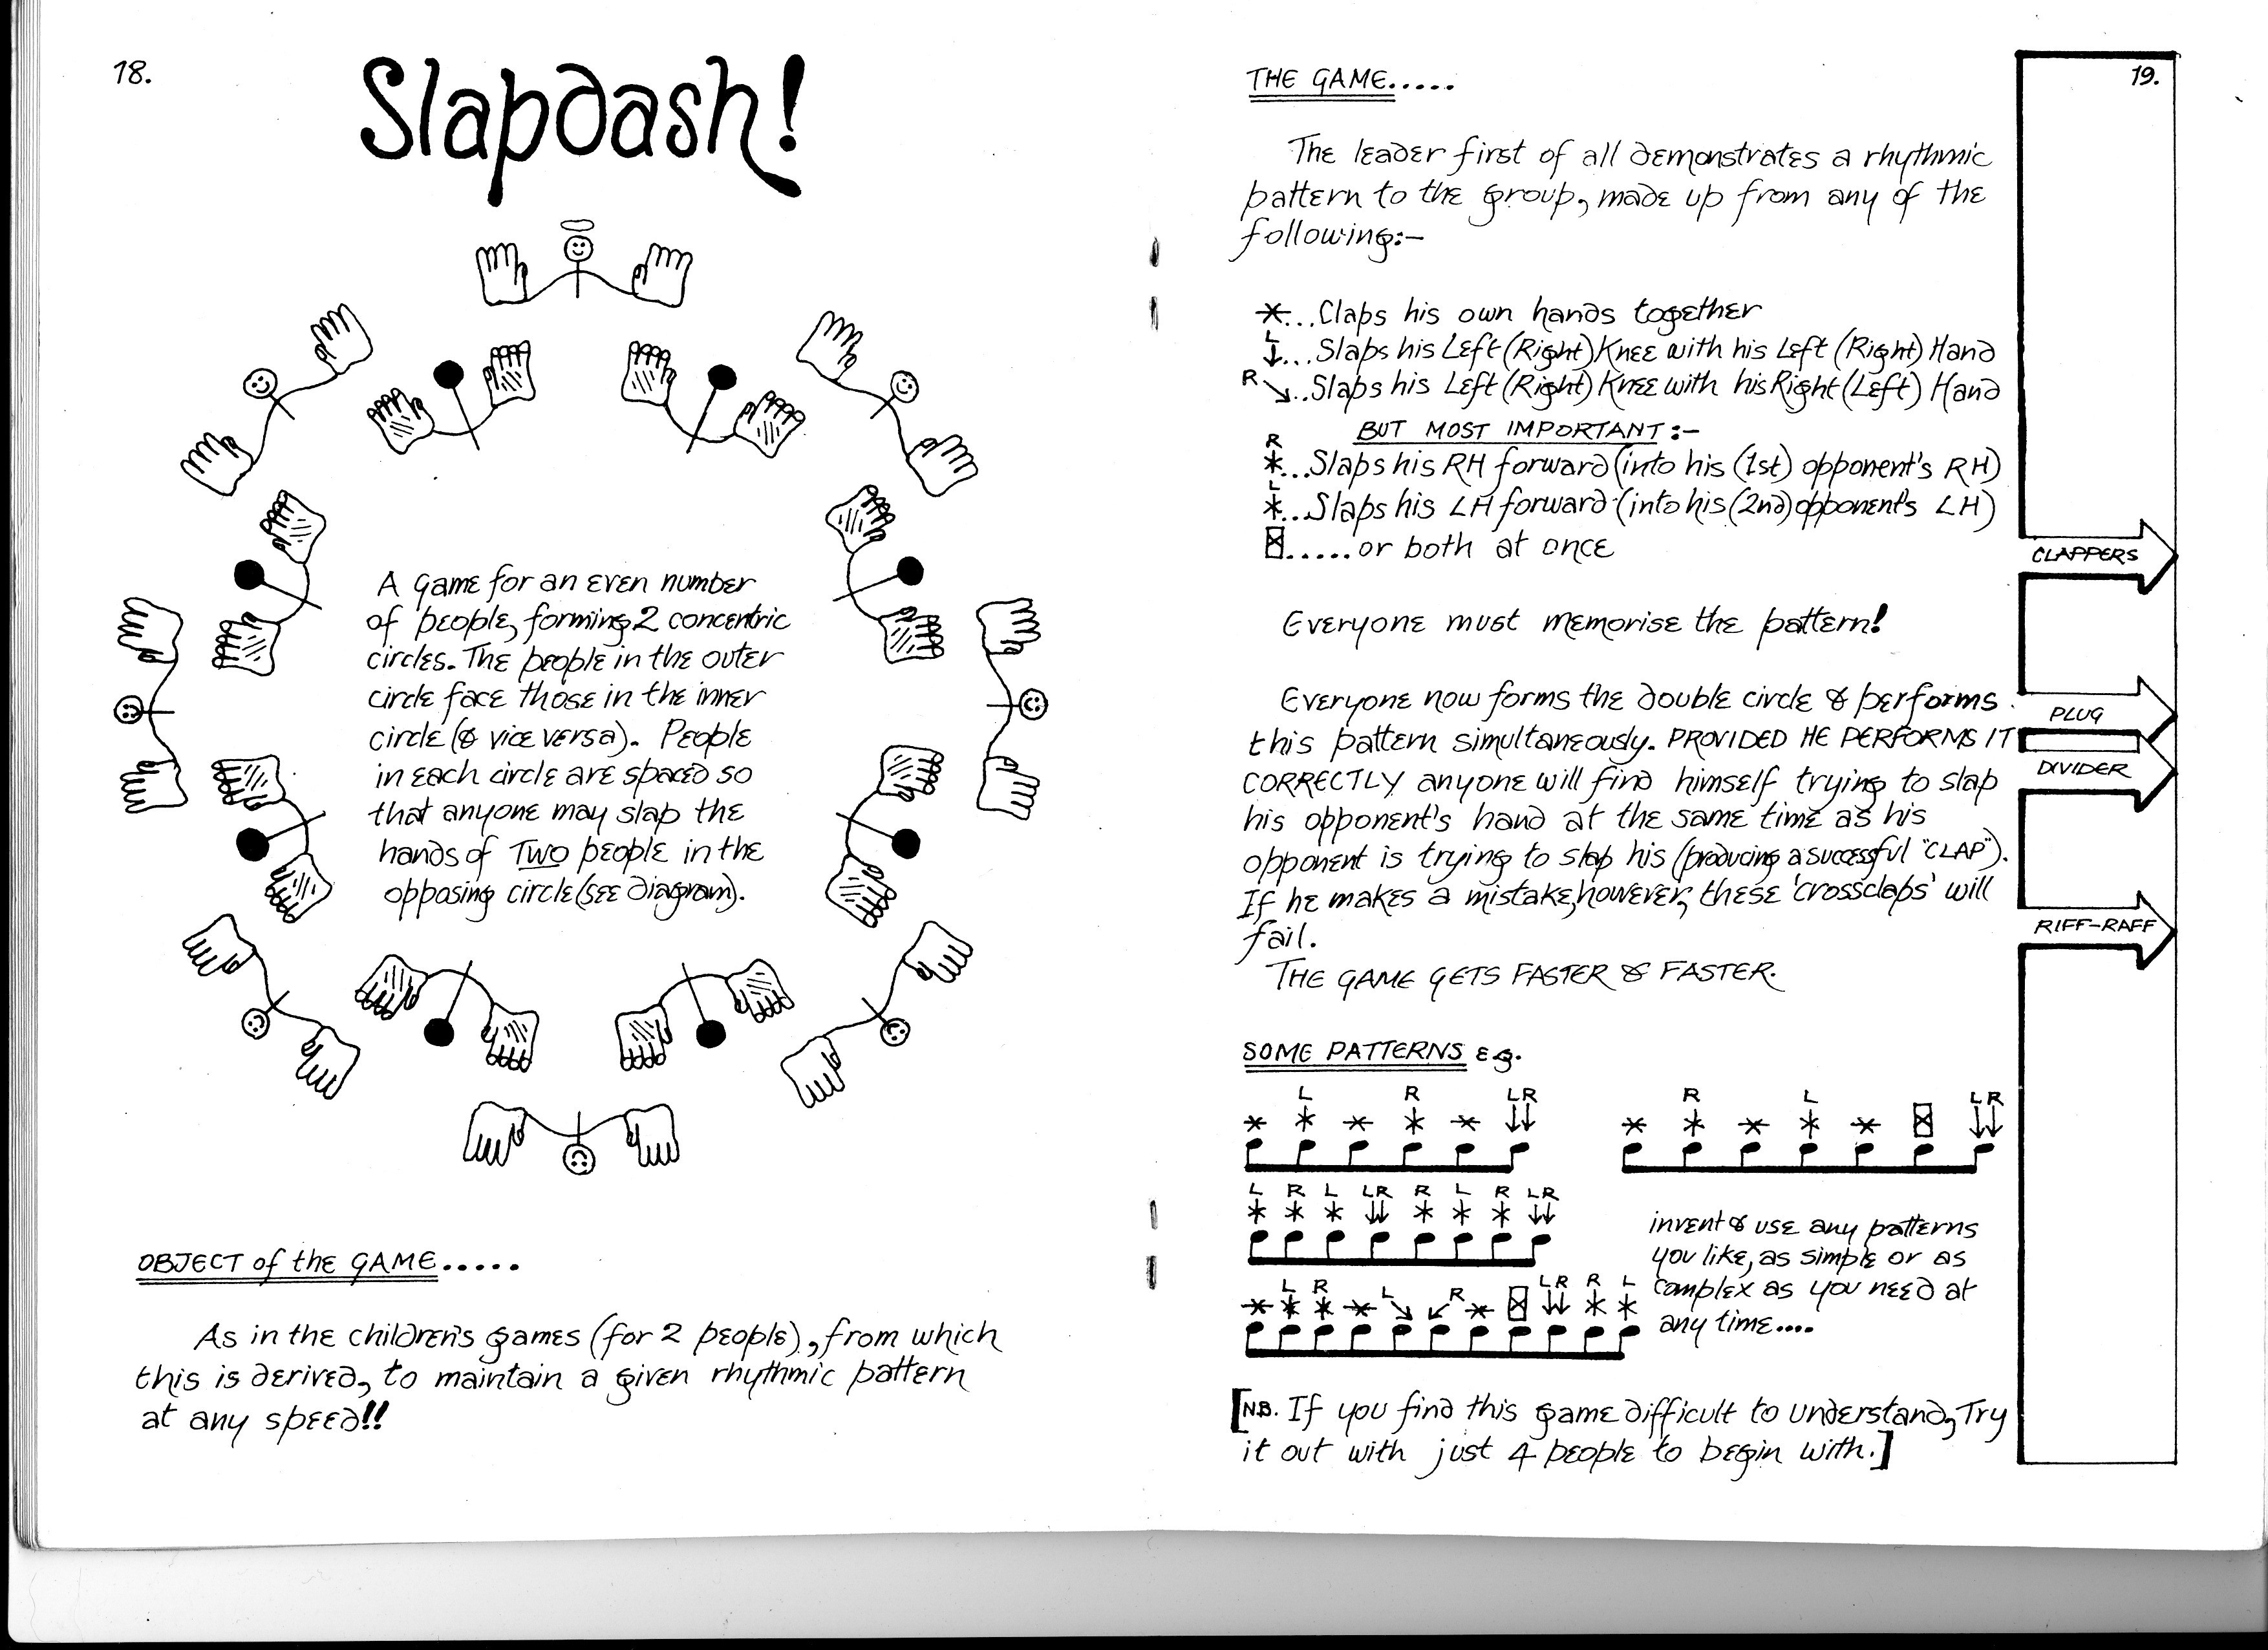 18.
Slapdash!
A game for an even number
of people, forming 2 concentric
circles. The people in the outer
circle face those in the inner
circle (& vice versa). People
in each circle are spaced so
that anyone may slap the
hands of TWO people in the
opposing circle (see diagram).
OBJECT of the GAME.....
As in the children's games (for 2 people), from which
this is derived, to maintain a given rhythmic pattern
at any speed!!
19.
THE GAME.....
The leader first of all demonstrates a rhythmic
pattern to the group, made up from any of the
following:-
*...Claps his own hands together
L
↓...Slaps his Left (Right) Knee with his Left (Right) Hand
R ↘..Slaps his Left (Right) Knee with his Right (Left) Hand
BUT MOST IMPORTANT:-
R
*...Slaps his RH forward (into his (1st) opponent's RH)
L
*...Slaps his LH forward (into his (2nd) opponent's LH)
.....or both at once
Everyone must memorise the pattern!
Everyone now forms the double circle & performs
this pattern simultaneously. PROVIDED HE PERFORMS IT
CORRECTLY anyone will find himself trying to slap
his opponent's hand at the same time as his
opponent is trying to slap his (producing a successful "CLAP").
If he makes a mistake, however, these 'crossclaps' will
fail.
THE GAME GETS FASTER & FASTER.
SOME PATTERNS e.g.
L R LR
* * * * * ↓↓
R L LR
* * * * * ↓↓
L R L LR R L R LR
* * * ↓↓ * * * ↓↓
L R L R LR R L
* * * * ↘ ↙ * ↓↓ * *
invent & use any patterns
you like, as simple or as
complex as you need at
any time....
[N.B. If you find this game difficult to understand, Try
it out with just 4 people to begin with.]
CLAPPERS
PLUG
DIVIDER
RIFF-RAFF